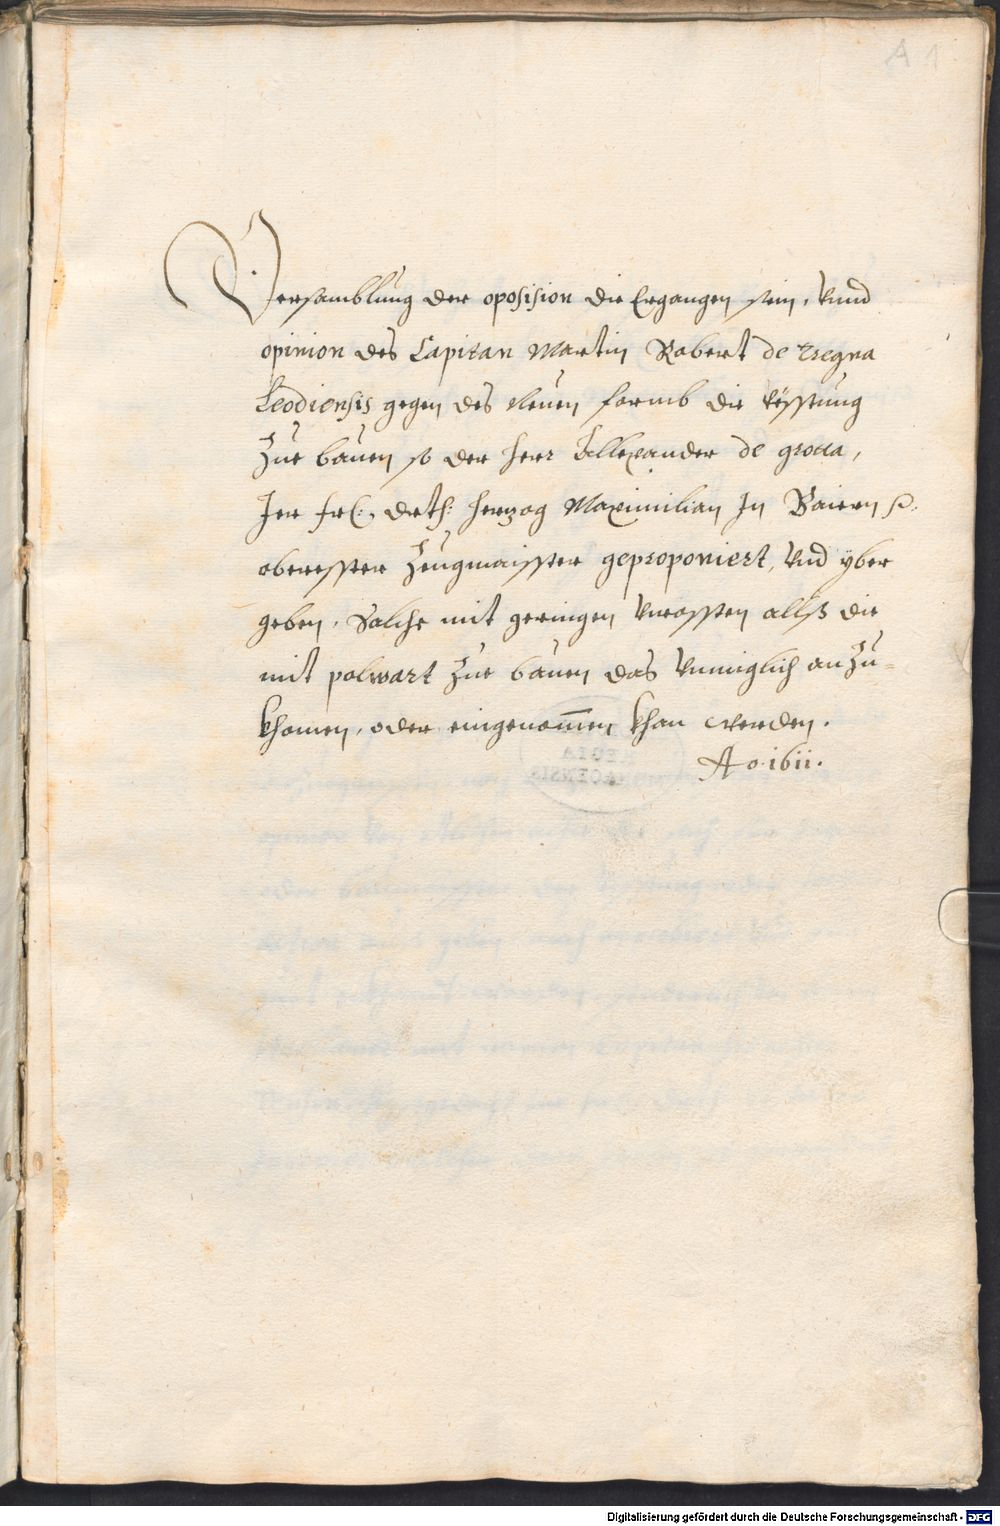 A 1
Versamblung der oposision die Ergangen sein, Vnnd
opinion des Capitan Martin Robert de Tregna
Leodiensis gegen des Neuen formb die Vesstung
Zue bauen so der herr Allexander de grotta,
Jer frl: drth: hertzog Maximilian Jn Baiern
oberesster Zeugmaisster geproponiert, Vnd yber
geben. Solche mit geringen Vncossten allß die
mit polwart Zue bauen das Vnmiglich anZu=
khomen, oder eingenomen khan werden.
Ao. 1611.
REGIA
Digitalisierung gefördert durch die Deutsche Forschungsgemeinschaft - DFG